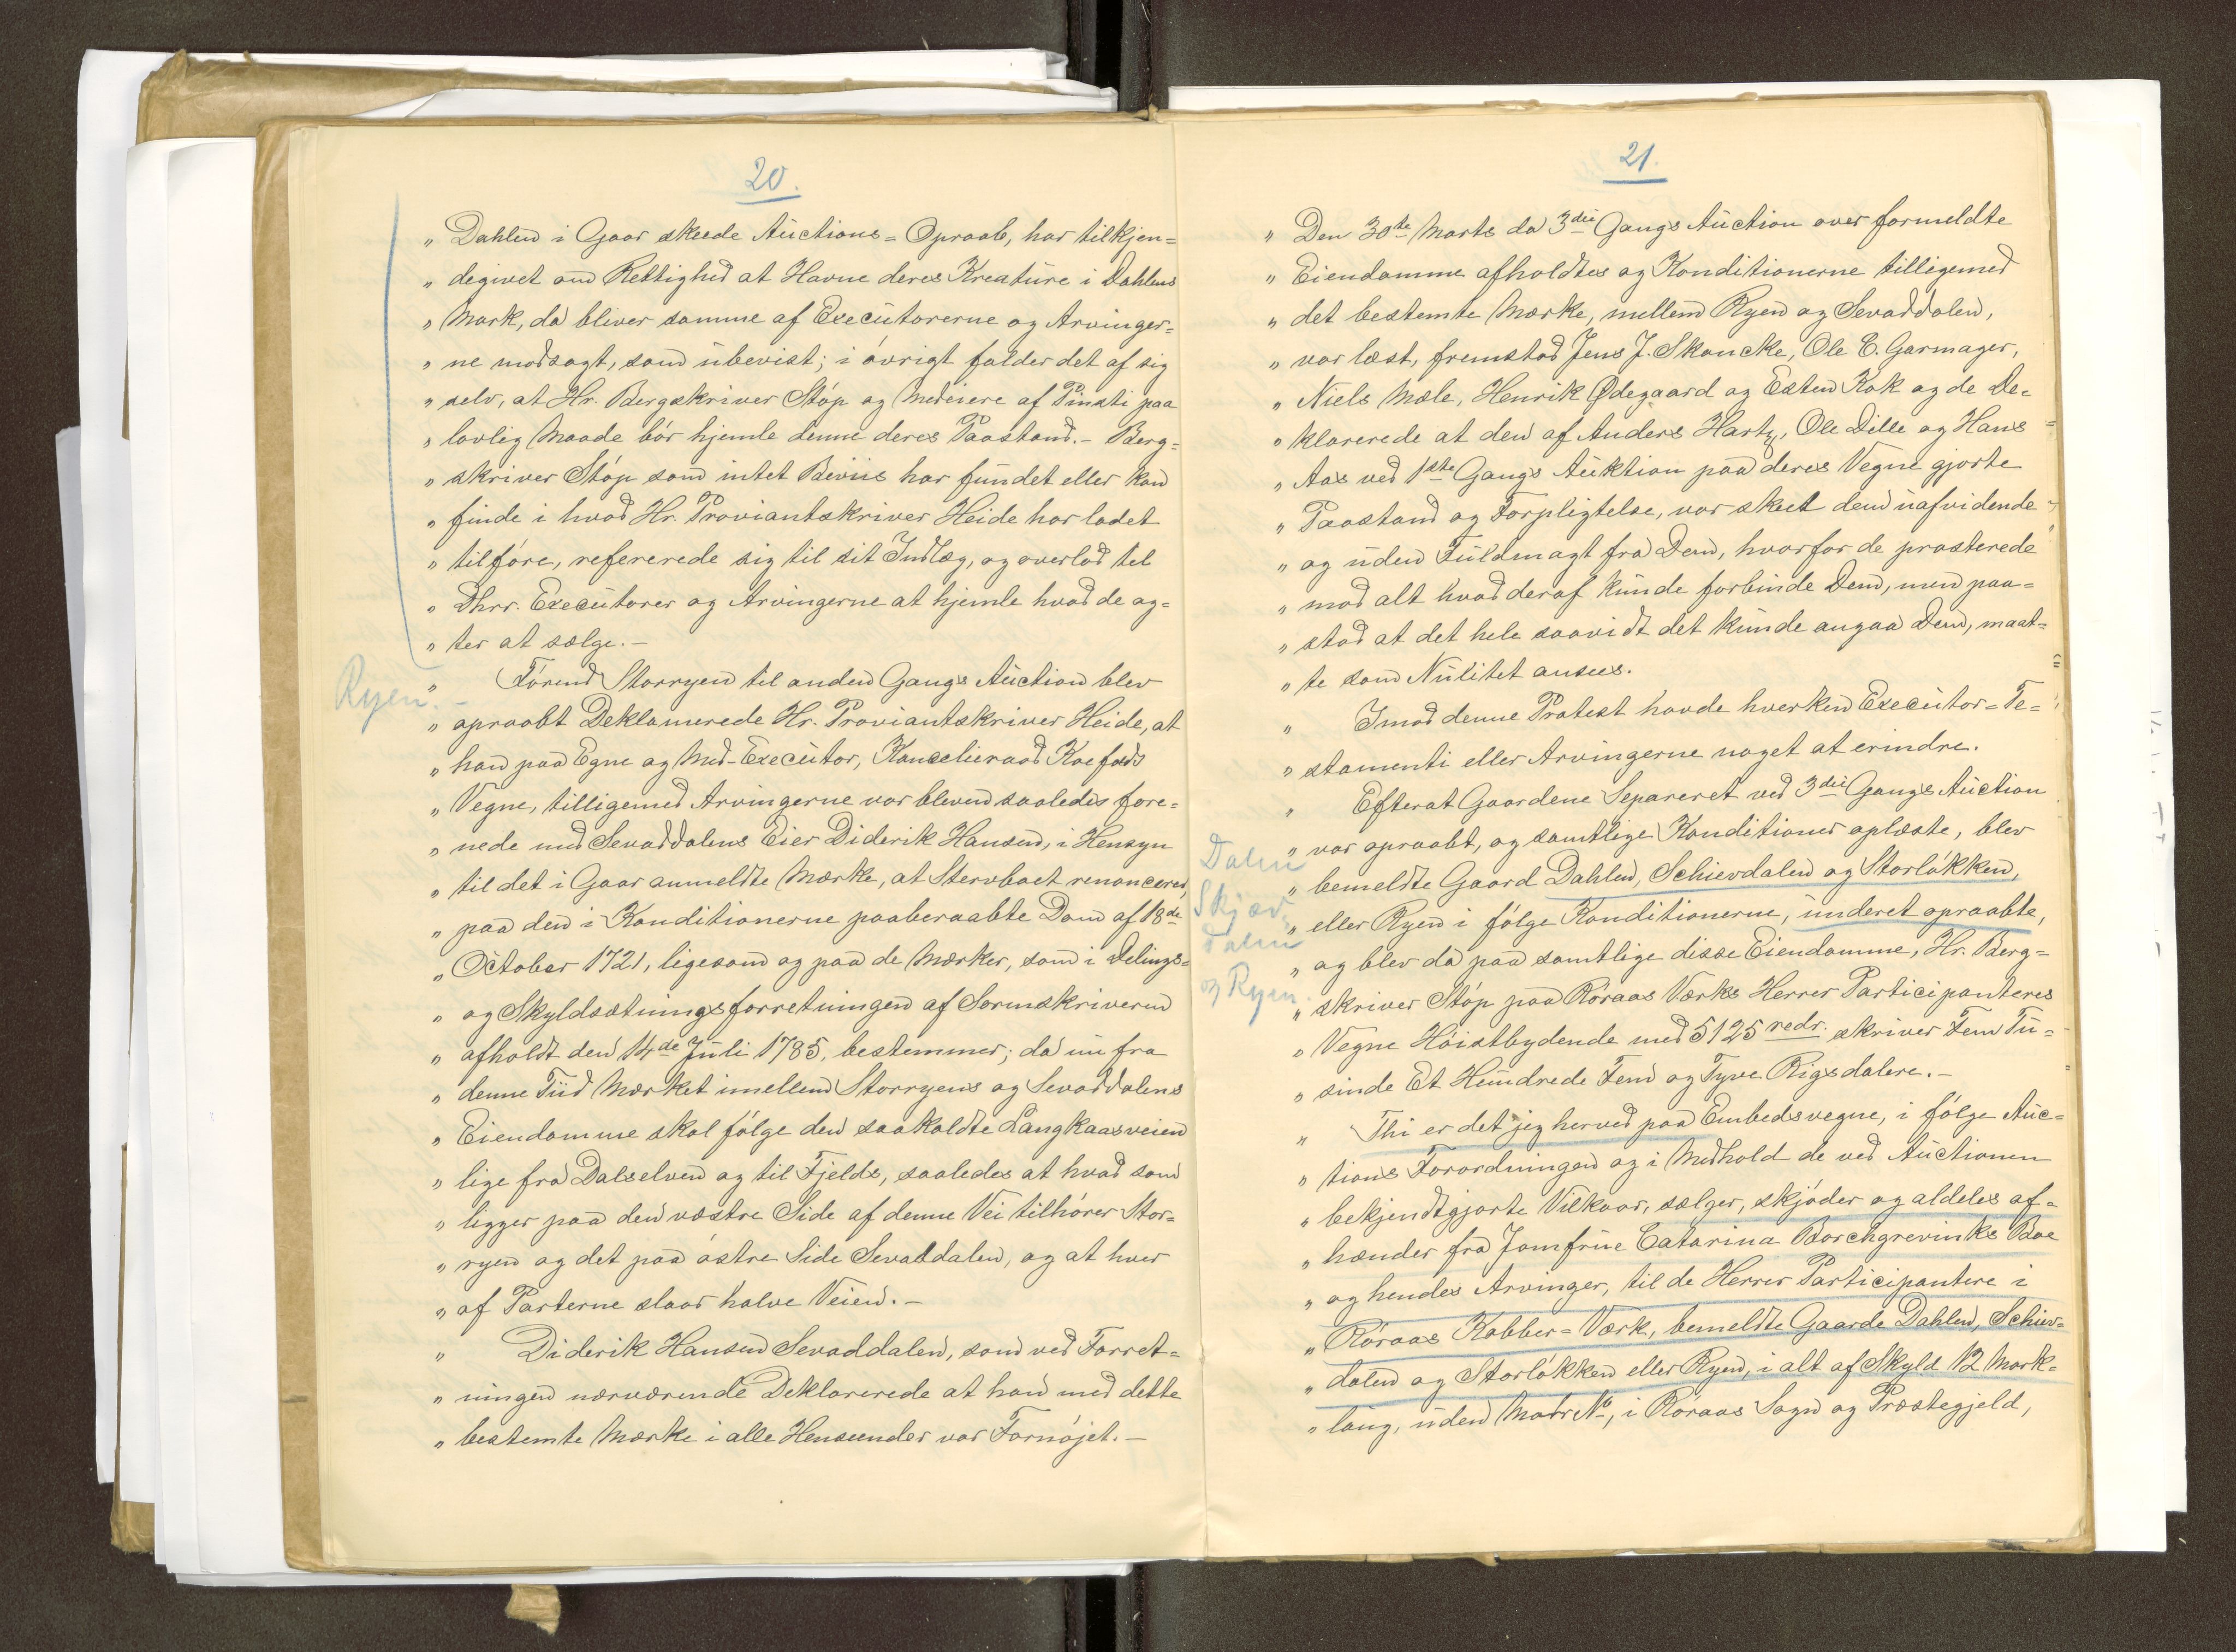 20.
„ Dahlen i Gaar skeede Auctions=Opraab, har tilkjen=
„ degivet om Rettighed at Havne deres Kreature i Dahlens
„ Mark, da bliver samme af Executorerne og Arvinger=
„ ne modsagt, som ubevist; i övrigt falder det af sig
„ selv, at Hr. Bergskriver Stöp og Medeiere af Pinsti paa
„ lovlig Maade bör hjemle denne deres Paastand.- Berg=
„ skriver Stöp som intet Beviis har fundet eller kan
„ finde i hvad Hr. Proviantskriver Heide har ladet
„ tilföre, refererede sig til sit Indlæg, og overlod til
„ Dhrr. Executorer og Arvingerne at hjemle hvad de ag=
„ ter at sælge.-
Ryen.-
„ Förend Storryen til anden Gangs Auction blev
„ opraabt Deklamerede Hr. Proviantskriver Heide, at
„ han paa Egne og Med-Executor, Kancelieraad Koefoeds
„ Vegne, tilligemed Arvingerne var bleven saaledes fore=
„ nede med Sevaddalens Eier Diderik Hansen, i Hensyn
„ til det i Gaar anmeldte Mærke, at Stervboet renoncerer,
„ paa den i Konditionerne paaberaabte Dom af 18de
„ October 1721, ligesom og paa de Mærker, som i Delings=
„ og Skyldsætningsforretningen af Sorenskriveren
„ afholdt den 14de Juli 1785, bestemmer; da nu fra
„ denne Tiid Mærket imellem Storryens og Sevaddalens
„ Eiendomme skal fölge den saakaldte Langkaasveien
„ lige fra Dalselven og til Fjelds, saaledes at hvad som
„ ligger paa den væstre Side af denne Vei tilhörer Stor=
„ ryen og det paa östre Side Sevaddalen, og at hver
„ af Parterne slaar halve Veien.-
„ Diderik Hansen Sevaddalen, som ved Forret=
„ ningen nærværende Deklarerede at han med dette
„ bestemte Mærke i alle Henseender var Fornöjet.-
21.
„ Den 30te Marts da 3die Gangs Auction over formeldte
„ Eiendomme afholdtes og Konditionerne tilligemed
„ det bestemte Mærke, mellem Ryen og Sevaddalen,
„ var læst, fremstod Jens J. Skancke, Ole E. Garmager,
„ Niels Mæle, Henrik Ødegaard og Esten Kok og de De=
„ klarerede at den af Anders Hartz, Ole Dille og Hans
„ Aas ved 1ste Gangs Auktion paa deres Vegne gjorte
„ Paastand og Forpligtelse, var skeet dem uafvidende
„ og uden Fuldmagt fra Dem, hvorfor de prosterede
„ mod alt hvad deraf kunde forbinde Dem, men paa=
„ stod at det hele saavidt det kunde angaa Dem, maat=
„ te som Nulitet ansees.
„ Imod denne Protest havde hverken Executor=Te=
„ stamenti eller Arvingerne noget at erindre.
„ Efterat Gaardene Separeret ved 3die Gangs Auction
„ var opraabt, og samtlige Konditioner oplæste, blev
Dalen
Skjæv-
dalen
og Ryen.
„ bemeldte Gaard Dahlen, Schievdalen og Storlökken,
„ eller Ryen i fölge Konditionerne, underet opraabte,
„ og blev da paa samtlige disse Eiendomme, Hr. Berg=
„ skriver Stöp paa Röraas Værks Herrer Participanteres
„ Vegne Höistbydende med 5125 redr. skriver Fem Tu=
„ sinde Et Hundrede Fem og Tyve Rigsdalere.-
„ Thi er det jeg herved paa Embedsvegne, i fölge Auc=
„ tions Forordningen og i Medhold de ved Auctionen
„ bekjendtgjorte Vilkaar, sælger, skjöder og aldeles af=
„ hænder fra Jomfrue Catarina Borchgrevinks Boe
„ og hendes Arvinger, til de Herrer Participantere i
„ Röraas Kobber=Værk, bemeldte Gaarde Dahlen, Schiev=
„ dalen og Storlökken eller Ryen, i alt af Skyld 12 Mark=
„ laug, uden Matr No, i Röraas Sogn og Præstegjeld,